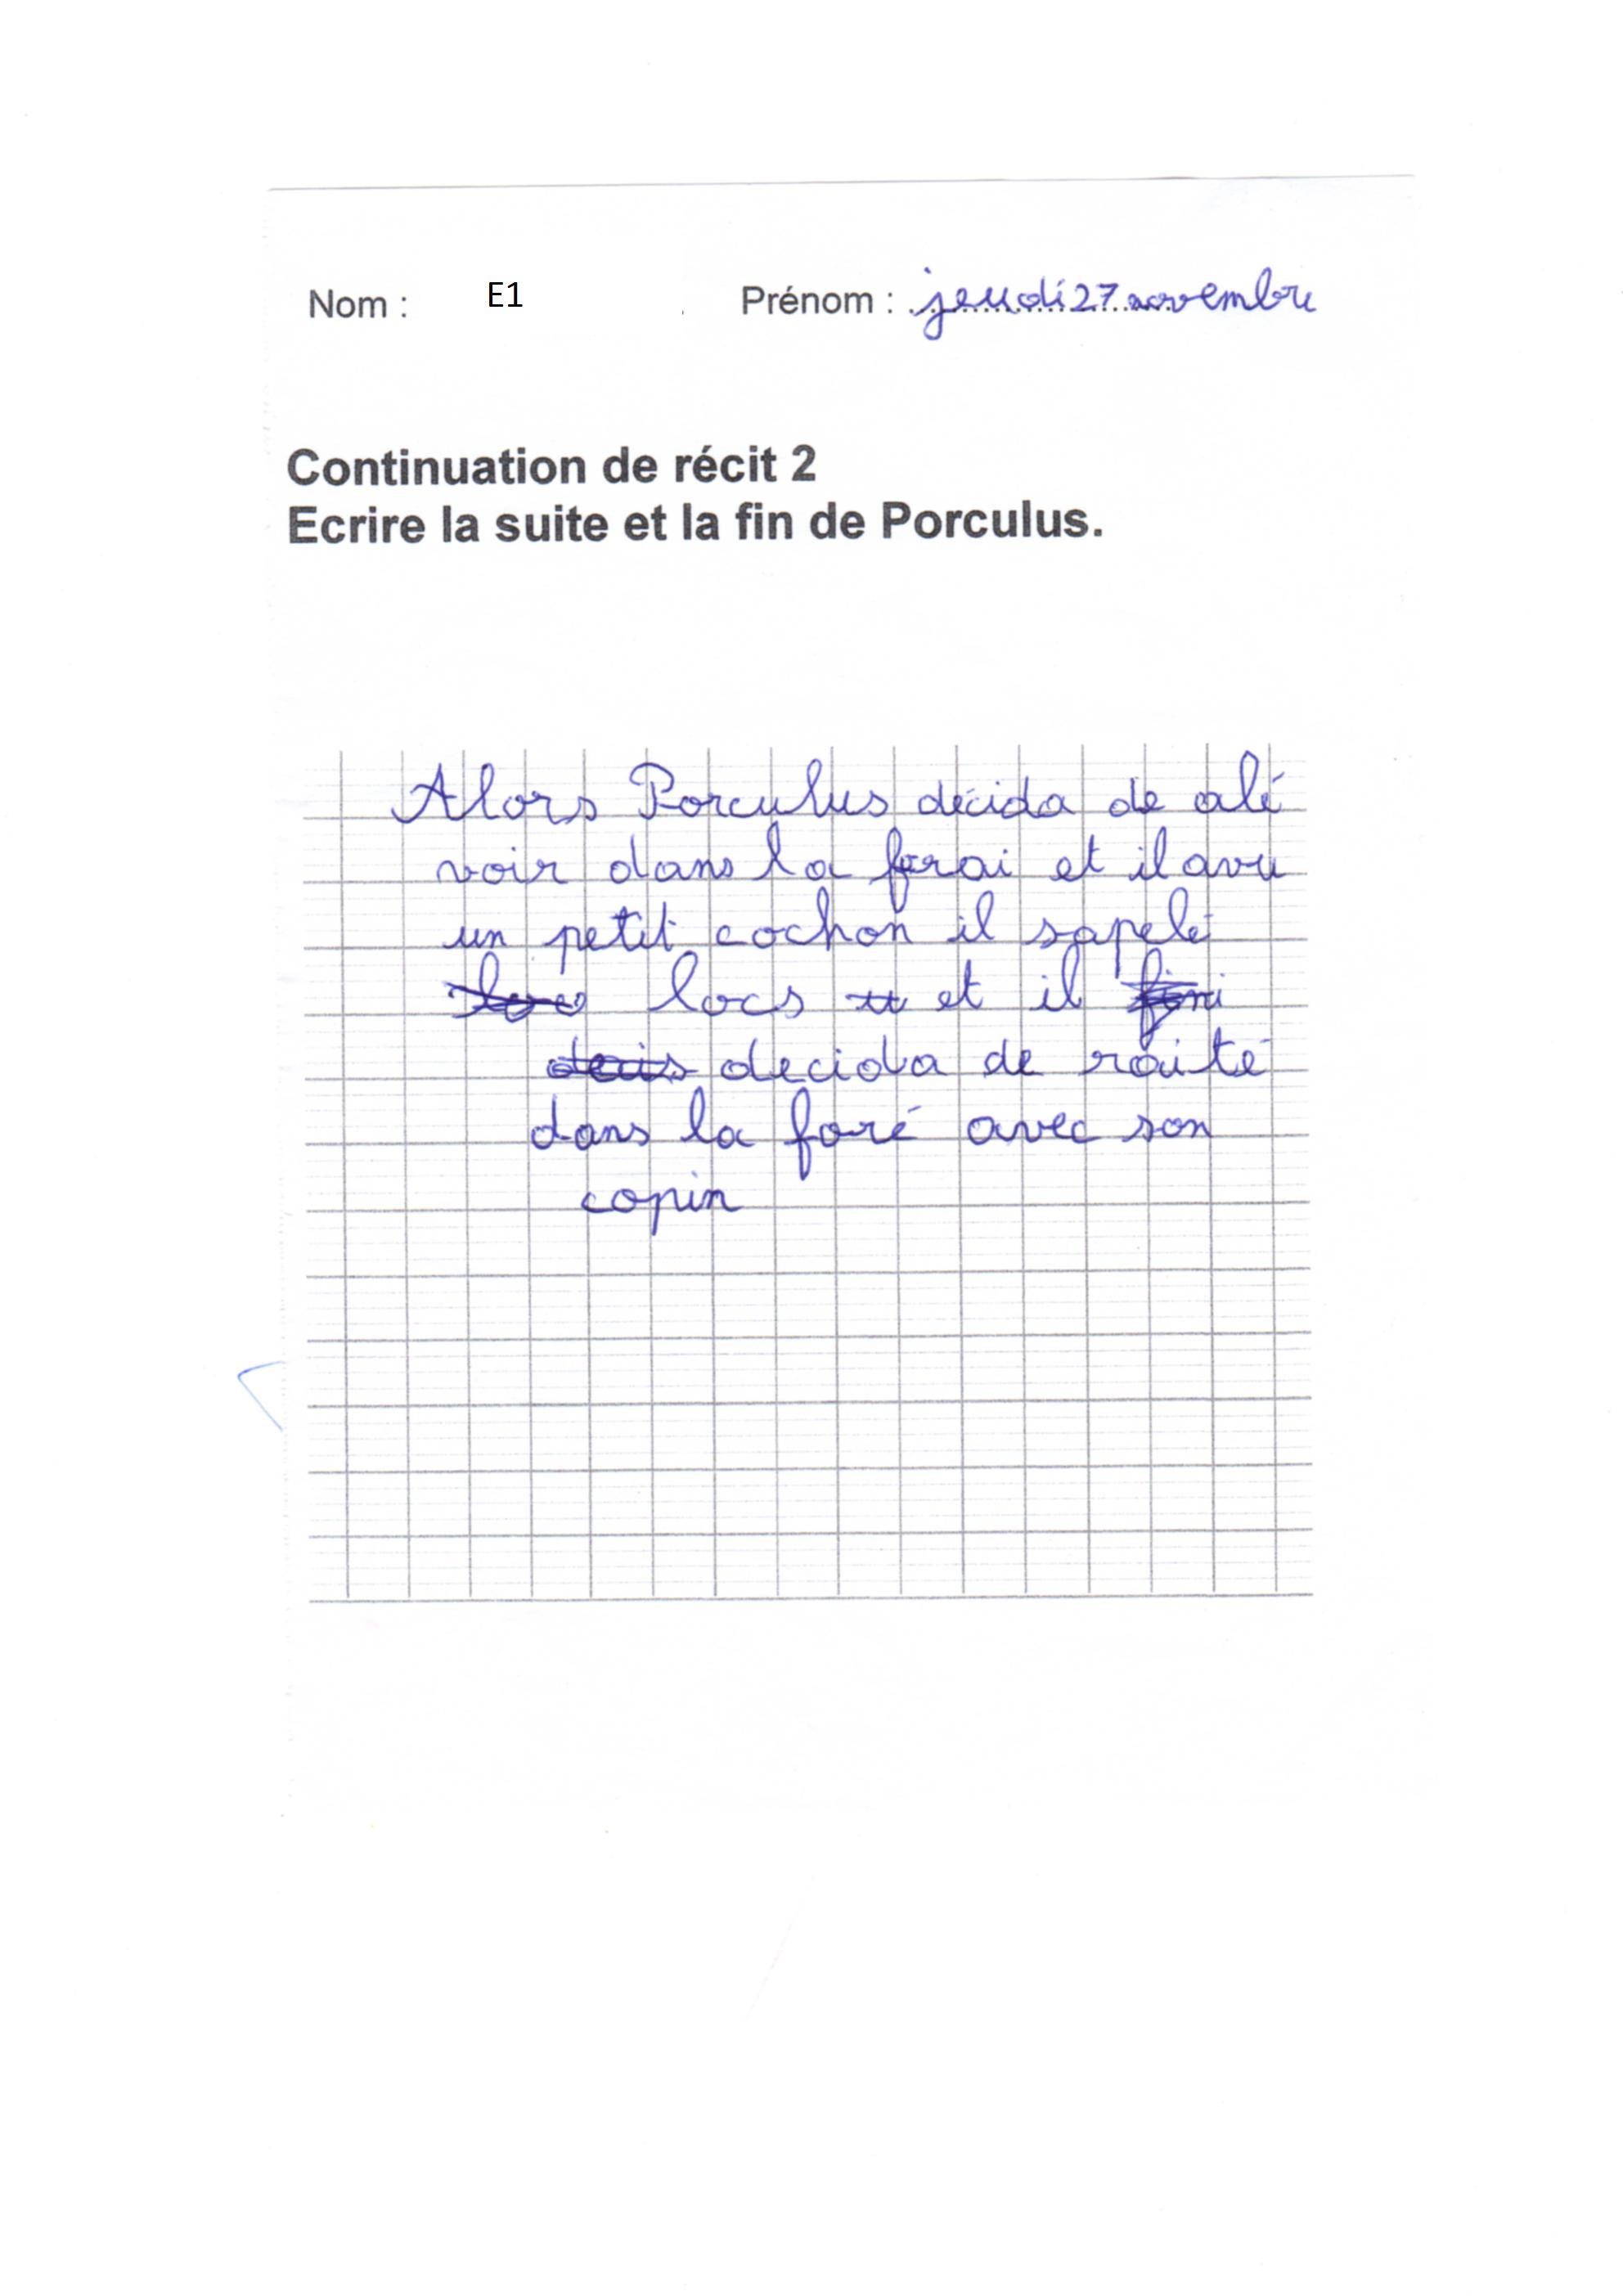 Nom : E1 Prénom : jeudi 27 novembre
Continuation de récit 2
Ecrire la suite et la fin de Porculus.
Alors Porculus décida de alé
voir dans la forai et il avu
un petit cochon il sapelé
locs et il
decida de raité
dans la foré avec son
copin